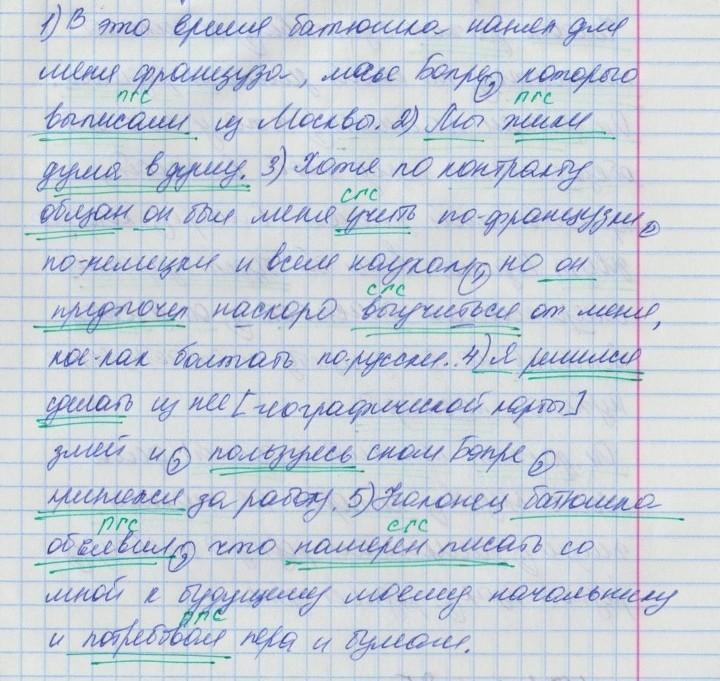 1) В это время батюшка нанял для
меня француза, мосье Бопре, которого
ПГС ПГС
выписали из Москвы. 2) Мы жили
душа в душу. 3) Хотя по контракту
СГС
обязан он был меня учить по-французски,
по-немецки и всем наукам, но он
СГС
предпочел наскоро выучиться от меня,
кое-как болтать по-русски.. 4) Я решился
сделать из нее [географической карты]
змей и, пользуясь сном Бопре,
принялся за работу. 5) Наконец батюшка
ПГС СГС
объявил, что намерен писать со
мной к будущему моему начальнику
ПГС
и потребовал пера и бумаги.